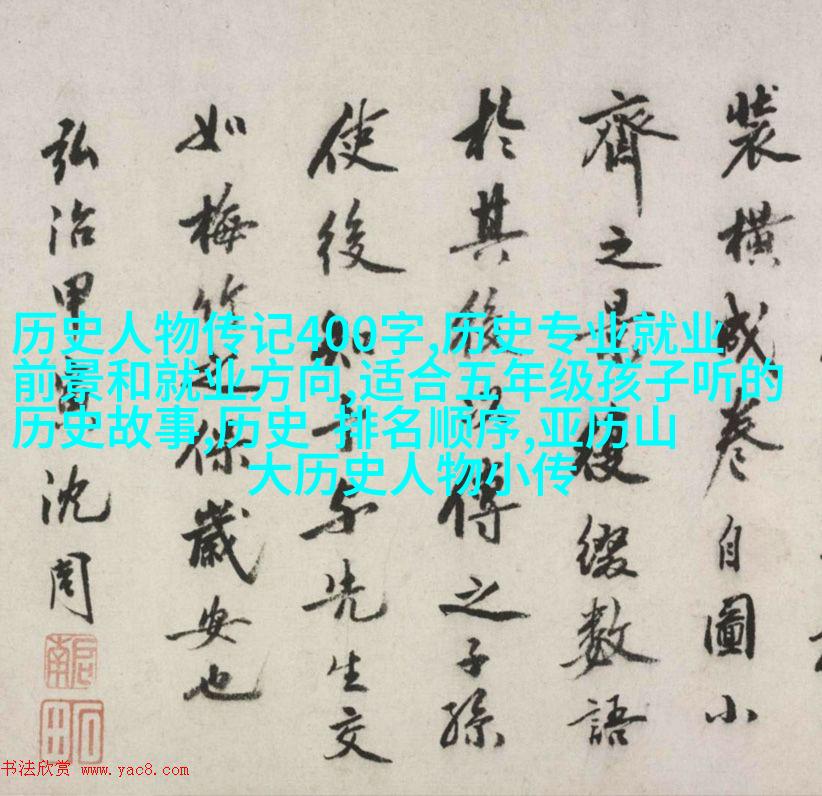 裝橫成卷自圖小
齋之景後綴數語
於其後傳之子孫
使後知予与先生交
如梅竹之保歲安也
弘治甲沈周
启南
石田
历史人物传记400字,历史专业就业
前景和就业方向,适合五年级孩子听的
历史故事,历史 排名顺序,亚历山
大历史人物小传
书法欣赏 www.yac8.com